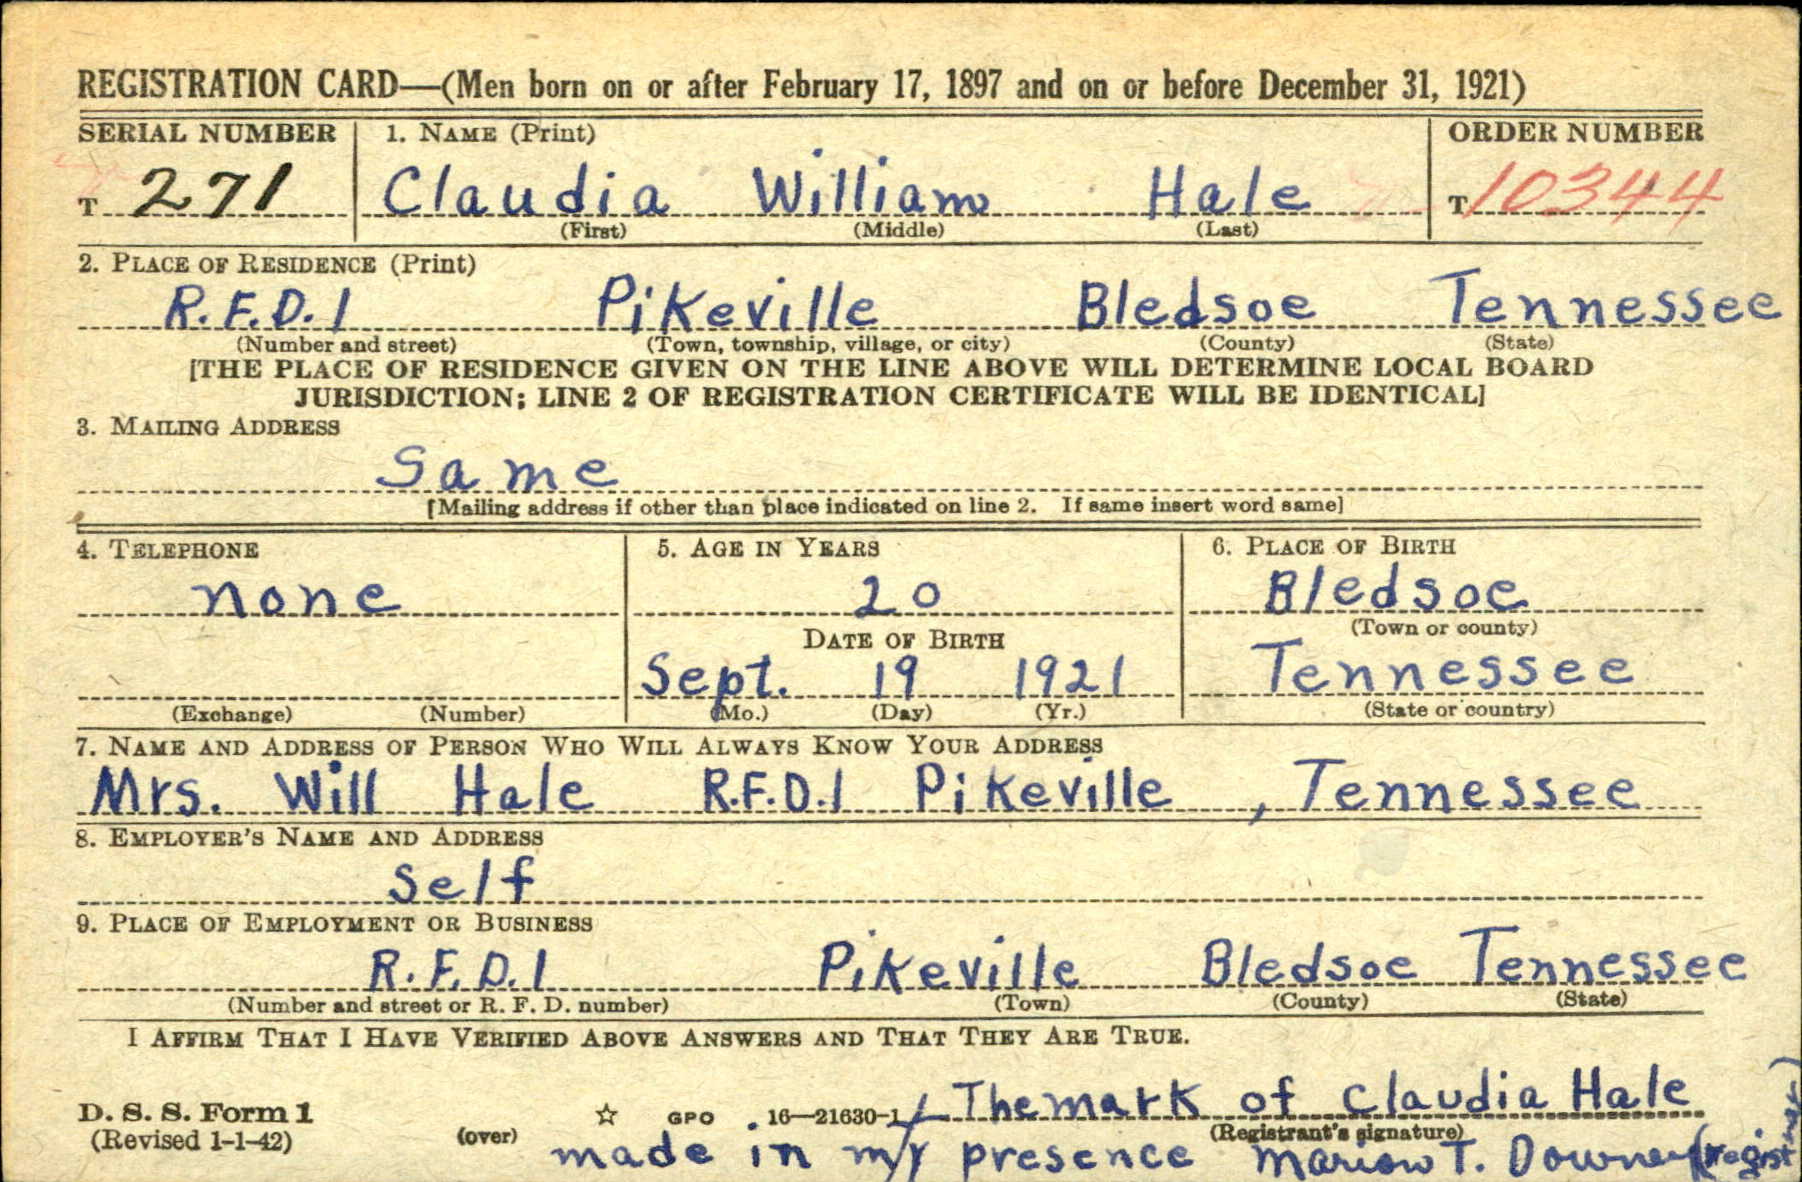 REGISTRATION CARD—(Men born on or after February 17, 1897 and on or before December 31, 1921)
SERIAL NUMBER 1. NAME (Print) ORDER NUMBER
T 271 Claudia William Hale T 10344
(First) (Middle) (Last)
2. PLACE OF RESIDENCE (Print)
R.F.D. 1 Pikeville Bledsoe Tennessee
(Number and street) (Town, township, village, or city) (County) (State)
[THE PLACE OF RESIDENCE GIVEN ON THE LINE ABOVE WILL DETERMINE LOCAL BOARD
JURISDICTION; LINE 2 OF REGISTRATION CERTIFICATE WILL BE IDENTICAL]
3. MAILING ADDRESS
Same
[Mailing address if other than place indicated on line 2. If same insert word same]
4. TELEPHONE 5. AGE IN YEARS 6. PLACE OF BIRTH
none 20 Bledsoe
(Town or county)
DATE OF BIRTH
Sept. 19 1921 Tennessee
(Exchange) (Number) (Mo.) (Day) (Yr.) (State or country)
7. NAME AND ADDRESS OF PERSON WHO WILL ALWAYS KNOW YOUR ADDRESS
Mrs. Will Hale R.F.D.1 Pikeville, Tennessee
8. EMPLOYER'S NAME AND ADDRESS
Self
9. PLACE OF EMPLOYMENT OR BUSINESS
R.F.D.1 Pikeville Bledsoe Tennessee
(Number and street or R. F. D. number) (Town) (County) (State)
I AFFIRM THAT I HAVE VERIFIED ABOVE ANSWERS AND THAT THEY ARE TRUE.
The mark of Claudia Hale
D. S. S. Form 1 GPO 16—21630-1
(Revised 1-1-42) (over) (Registrant's signature)
made in my presence Marion T.